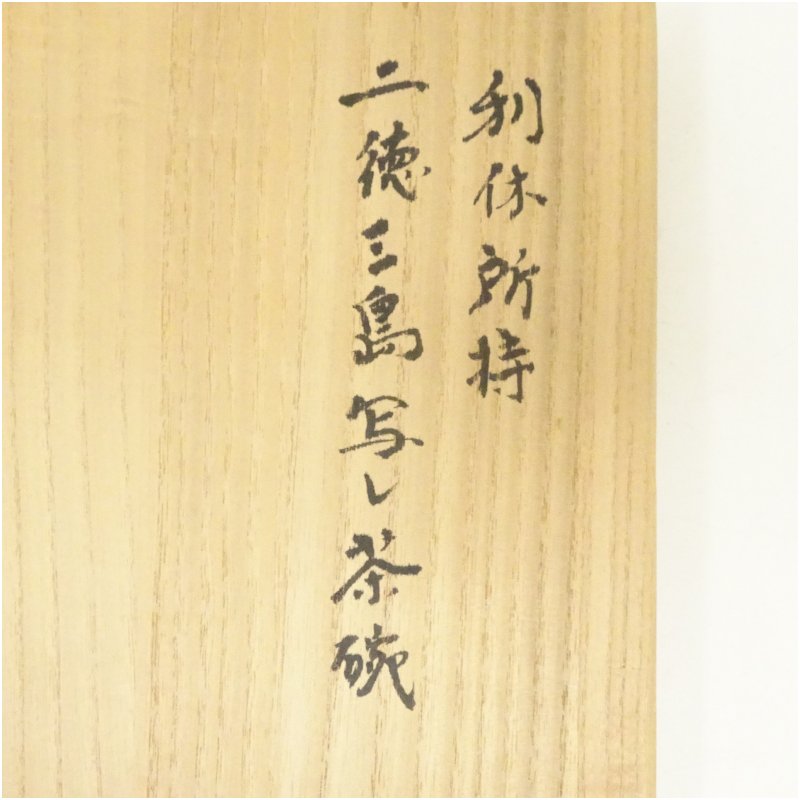 利休所持
二徳三島写し茶碗